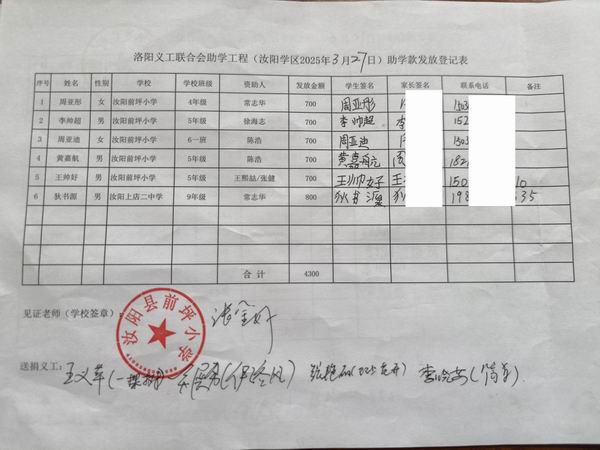 洛阳义工联合会助学工程（汝阳学区2025年3月27日）助学款发放登记表
序号 姓名 性别 学校 学校班级 资助人 发放金额 学生签名 家长签名 联系电话 备注
1 周亚彤 女 汝阳前坪小学 4年级 常志华 700 周亚彤 1503
2 李帅超 男 汝阳前坪小学 5年级 徐海志 700 李帅超 李 152
3 周亚迪 女 汝阳前坪小学 6一班 陈浩 700 周亚迪 1503
4 黄嘉航 男 汝阳前坪小学 5年级 陈浩 700 黄嘉航 182
5 王帅好 男 汝阳前坪小学 5年级 王熙喆/张健 700 王帅好 王 150 10
6 狄书源 男 汝阳上店二中学 9年级 常志华 800 狄书源 狄 198 35
合计 4300
见证老师（学校签章）：
汝阳县前坪小学
送捐义工：王义苹(一